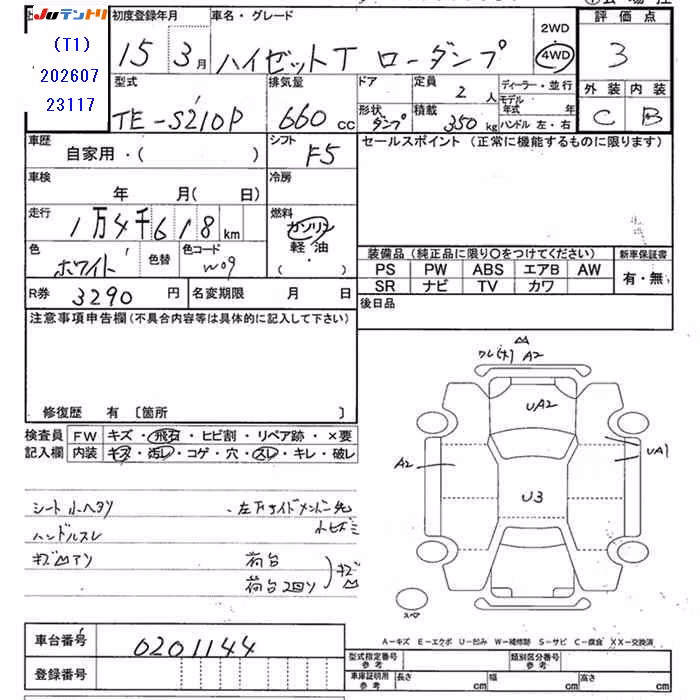 Juテントリ
(T1)
202607
23117
初度登録年月
15 3月
車名・グレード
ハイゼットT ローダンプ
2WD
4WD
評価点
3
外装 内装
C B
型式
TE-S210P
排気量
660 cc
ドア
形状
ダンプ
定員
2 人
積載
350 kg
ディーラー・並行
モデル
年式 年
ハンドル 左・右
車歴
自家用・( )
シフト
F5
セールスポイント (正常に機能するものに限ります)
車検
年 月( 日)
冷房
走行
1万4千618 km
燃料
ガソリン
軽・油
( ・ )
色
ホワイト
色替
色コード
W09
装備品 (純正品に限り〇をつけてください)
新車保証書
PS PW ABS エアB AW
SR ナビ TV カワ
有・無
R券 3290 円
名変期限 月 日
後日品
注意事項申告欄 (不具合内容等は具体的に記入して下さい)
修復歴 有 〔箇所 〕
検査員
記入欄
FW キズ・飛石・ヒビ割・リペア跡・×要
内装 キズ・汚レ・コゲ・穴・スレ・キレ・破レ
シート小ヘタリ
・左下サイドメンバー先
小ヒズミ
ハンドルスレ
キズ凹アリ
荷台
荷台2回り
キズ凹
A2
UA2
A2
UA1
U3
スペア
A-キズ E-エクボ U-凹み W-補修跡 S-サビ C-腐食 XX-交換済
車台番号 0201144
登録番号
型式指定番号
参考
類別区分番号
参考
車庫証明用
参考
長さ cm
幅 cm
高さ cm